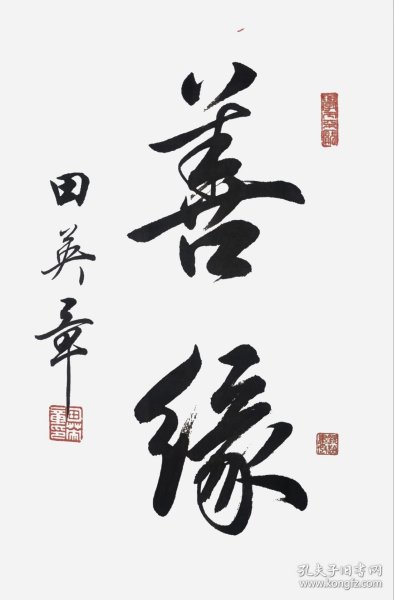 善缘
田英章
田英章印
孔夫子旧书网
www.kongfz.com